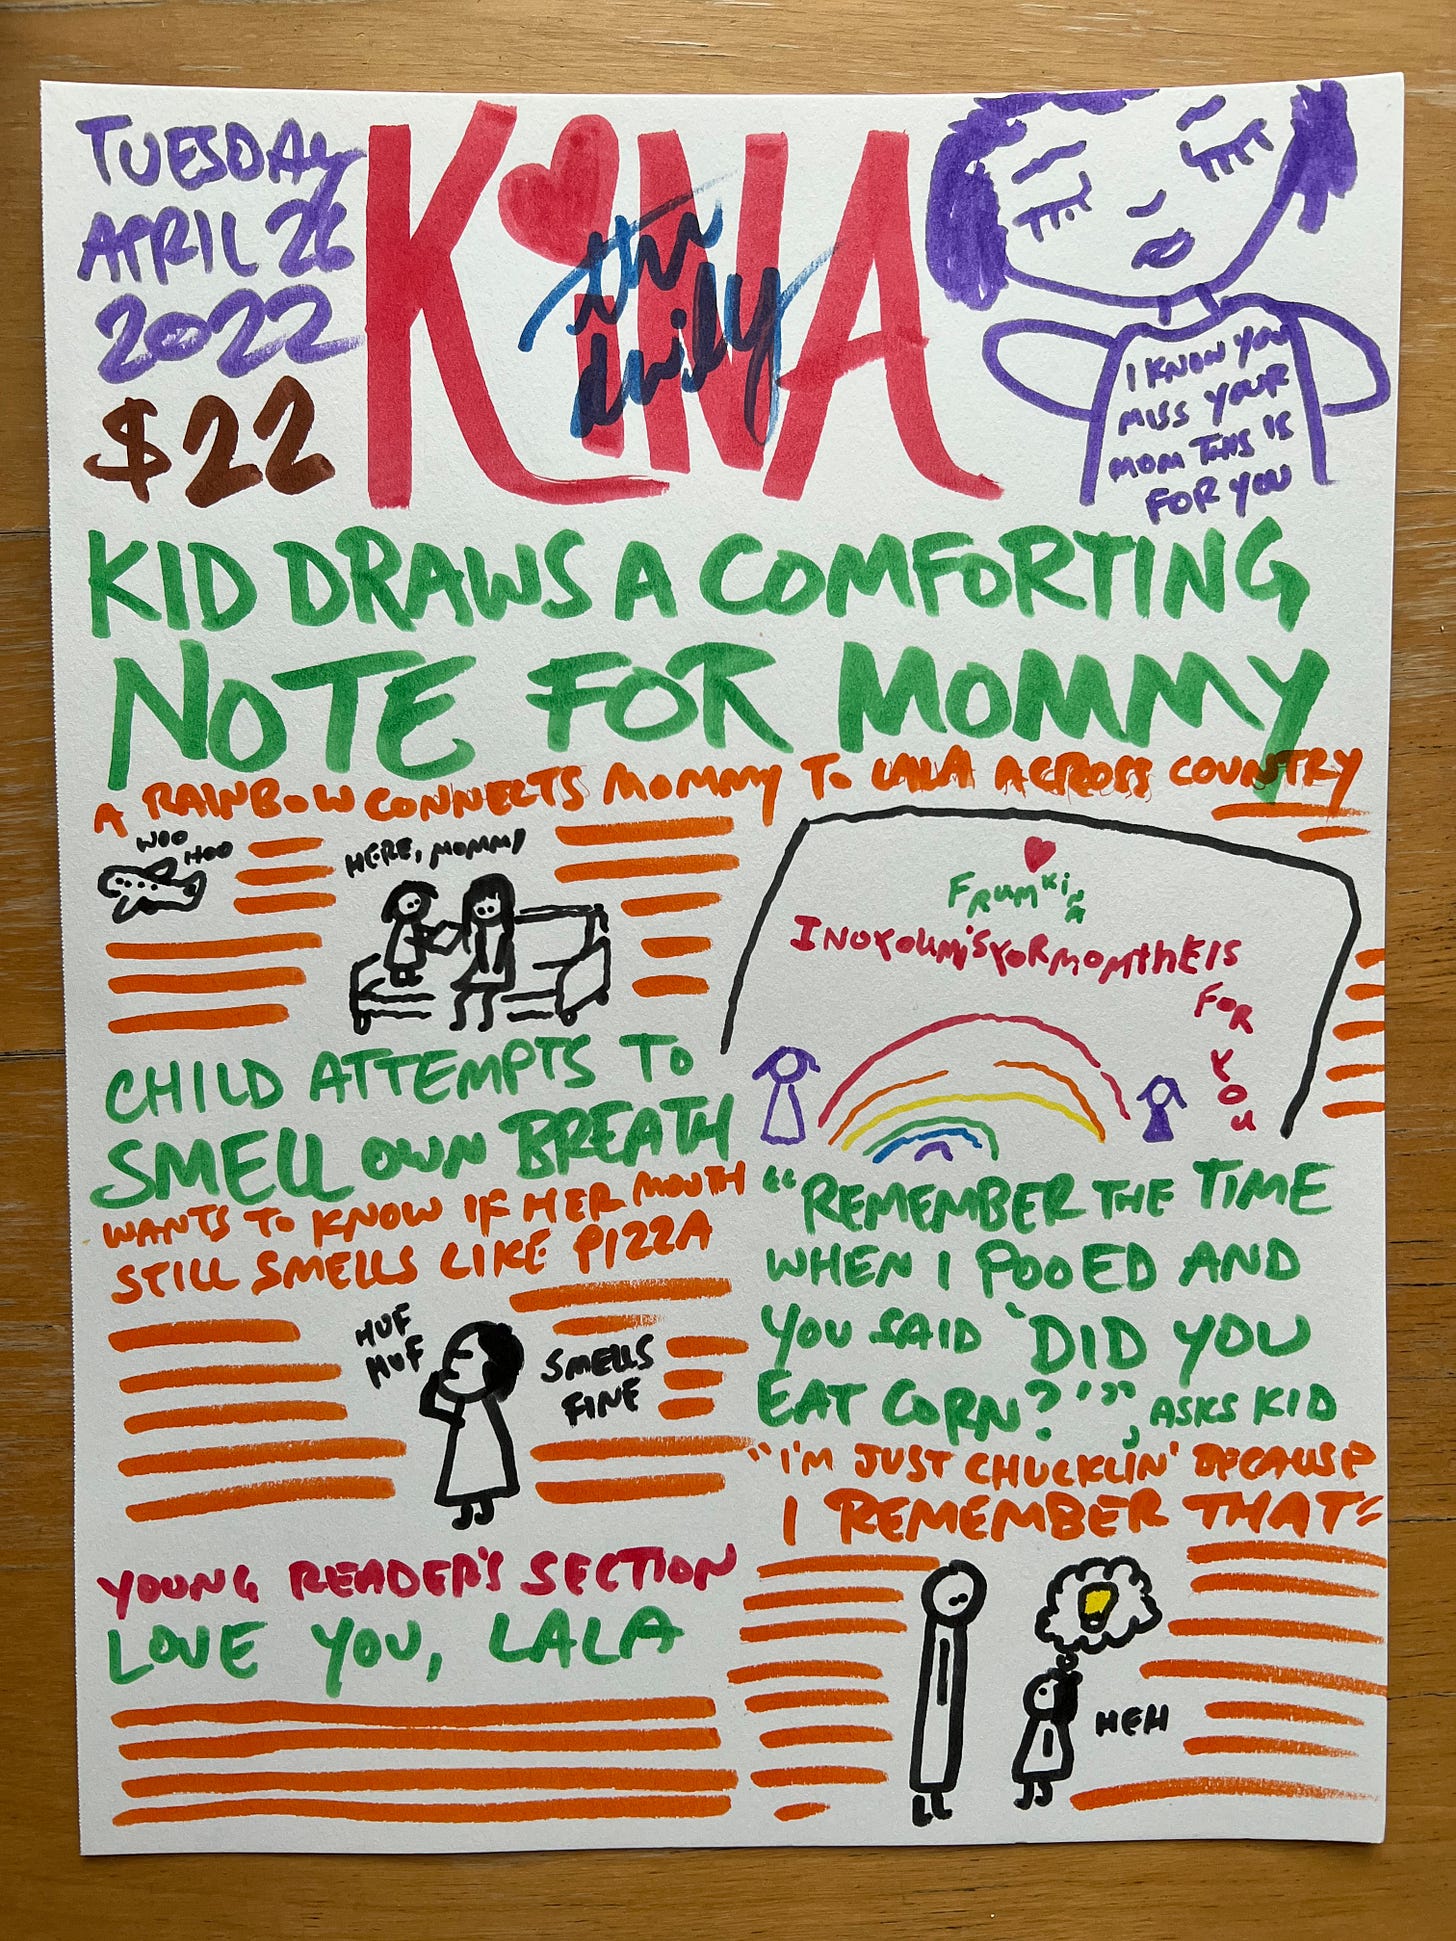 TUESDAY
APRIL 26
2022
$22
KINA
the daily
I KNOW YOU
MISS YOUR
MOM THIS IS
FOR YOU
KID DRAWS A COMFORTING
NOTE FOR MOMMY
A RAINBOW CONNECTS MOMMY TO LALA ACROSS COUNTRY
WOO
HOO
HERE, MOMMY
FRUM KINA
INOYOUMISYORMOMTHEIS
FOR
YOU
CHILD ATTEMPTS TO
SMELL OWN BREATH
WANTS TO KNOW IF HER MOUTH
STILL SMELLS LIKE PIZZA
HUF
HUF
SMELLS
FINE
"REMEMBER THE TIME
WHEN I POOED AND
YOU SAID 'DID YOU
EAT CORN?'", ASKS KID
"I'M JUST CHUCKLIN' BECAUSE
I REMEMBER THAT"
HEH
YOUNG READER'S SECTION
LOVE YOU, LALA